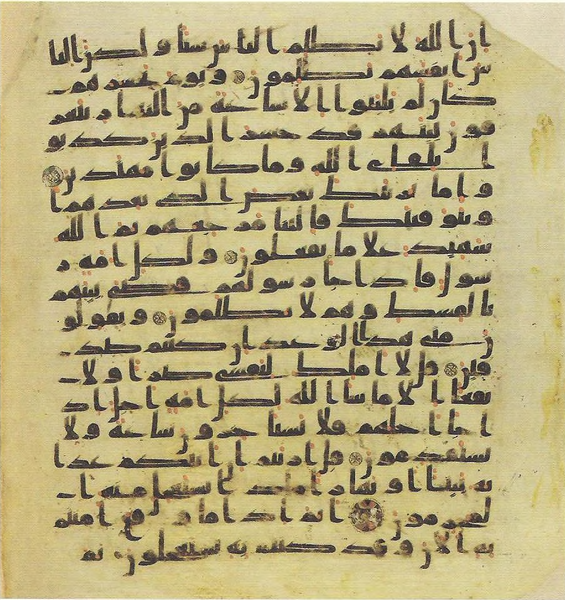 ان الله لا يظلم الناس شيئا ولكن النا
س انفسهم يظلمون ويوم يحشرهم
كان لم يلبثوا الا ساعة من النهار يتعر
فون بينهم قد خسر الذين كذبو
ا بلقاء الله وما كانوا مهتدين
واما نرينك بعض الذي نعدهم ا
و نتوفينك فالينا مرجعهم ثم الله
شهيد على ما يفعلون ولكل امة ر
سول فاذا جا رسولهم قضي بينهم
بالقسط وهم لا يظلمون ويقولو
ن متى هذا الوعد ان كنتم صد
قين قل لا املك لنفسي ضرا ولا
نفعا الا ما شا الله لكل امة اجل اذ
ا جا اجلهم فلا يستاخرون ساعة ولا
يستقدمون قل اريتم ان اتيكم عذا
به بيتا او نهارا ماذا يستعجل منه ا
لمجرمون اثم اذا ما وقع امنتم
به الان وقد كنتم به تستعجلون ثم